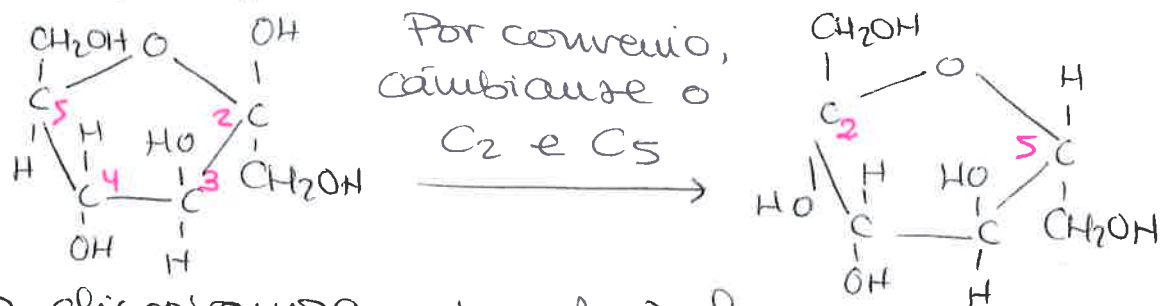 CH2OH O OH
C5 2C
H H HO CH2OH
C 4 3 C
OH H
Por convenio,
cámbianse o
C2 e C5
CH2OH O H
C2 5 C
HO H HO CH2OH
C C
OH H